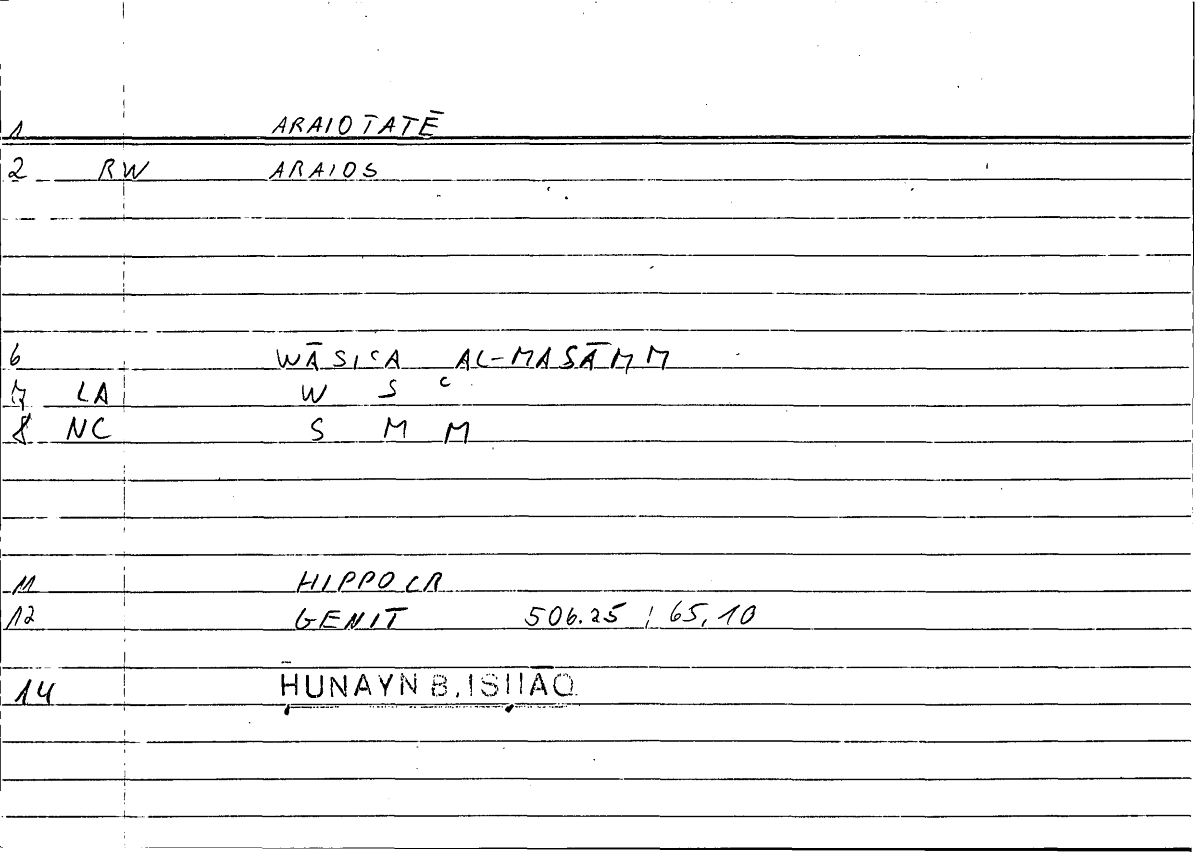 1 ARAIOTATĒ
2 RW ARAIOS
6 WĀSIʿA AL-MASĀMM
7 LA W S ʿ
8 NC S M M
11 HIPPOCR
12 GENIT 506.25 ; 65,10
14 ḤUNAYN B. ISḤĀQ